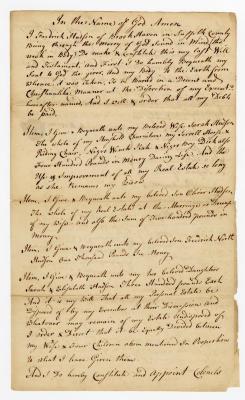 In the Name of God Amen
I Fredrick Hudson of Brook Haven in Suffolk County
Being through the mercy of God Sound in Mind tho
weak in Body, Do make & Constitute this my Last Will
and Testament, and First I do humbly Bequeath my
Soul to God the giver, and my Body to the Earth from
Whence it was taken, to be Buried in a Decent and
Christianlike Manner at the Discretion of my Executors
hereafter named, And I will & order that all my Debts
be paid.
Item, I Give & Bequeath unto my beloved Wife Sarah Hudson
The Whole of my Household Furniture my Sorrell Horse, &
Riding Chair, Negro Wench & Negro Boy Dick also
Four Hundred Pounds in Money During Life And the
Use & Improvement of all my Real Estate so long
as she Remains my Widow
Item, I Give & Bequeath unto my beloved Son Oliver Hudson
The Whole of my Real Estate at the Marriage or Decease
of my Wife and also the Sum of Five hundred pounds in
Money
Item, I Give & Bequeath unto my beloved Son Frederick North
Hudson One Thousand Pounds In Money
Item, I Give & Bequeath unto my two beloved Daughters
Sarah & Elizabeth Hudson Three Hundred pounds Each
And it is my Will That all my Personal Estate be
Disposed of by my Executors at their Discression And
Whatever may remain of my Estate undisposed of
I Order & Direct that it be Equally Divided between
my Wife & Four Children above mentioned In Proportion
to what I have Given them
And I Do hereby Constitute and Appoint Colonels